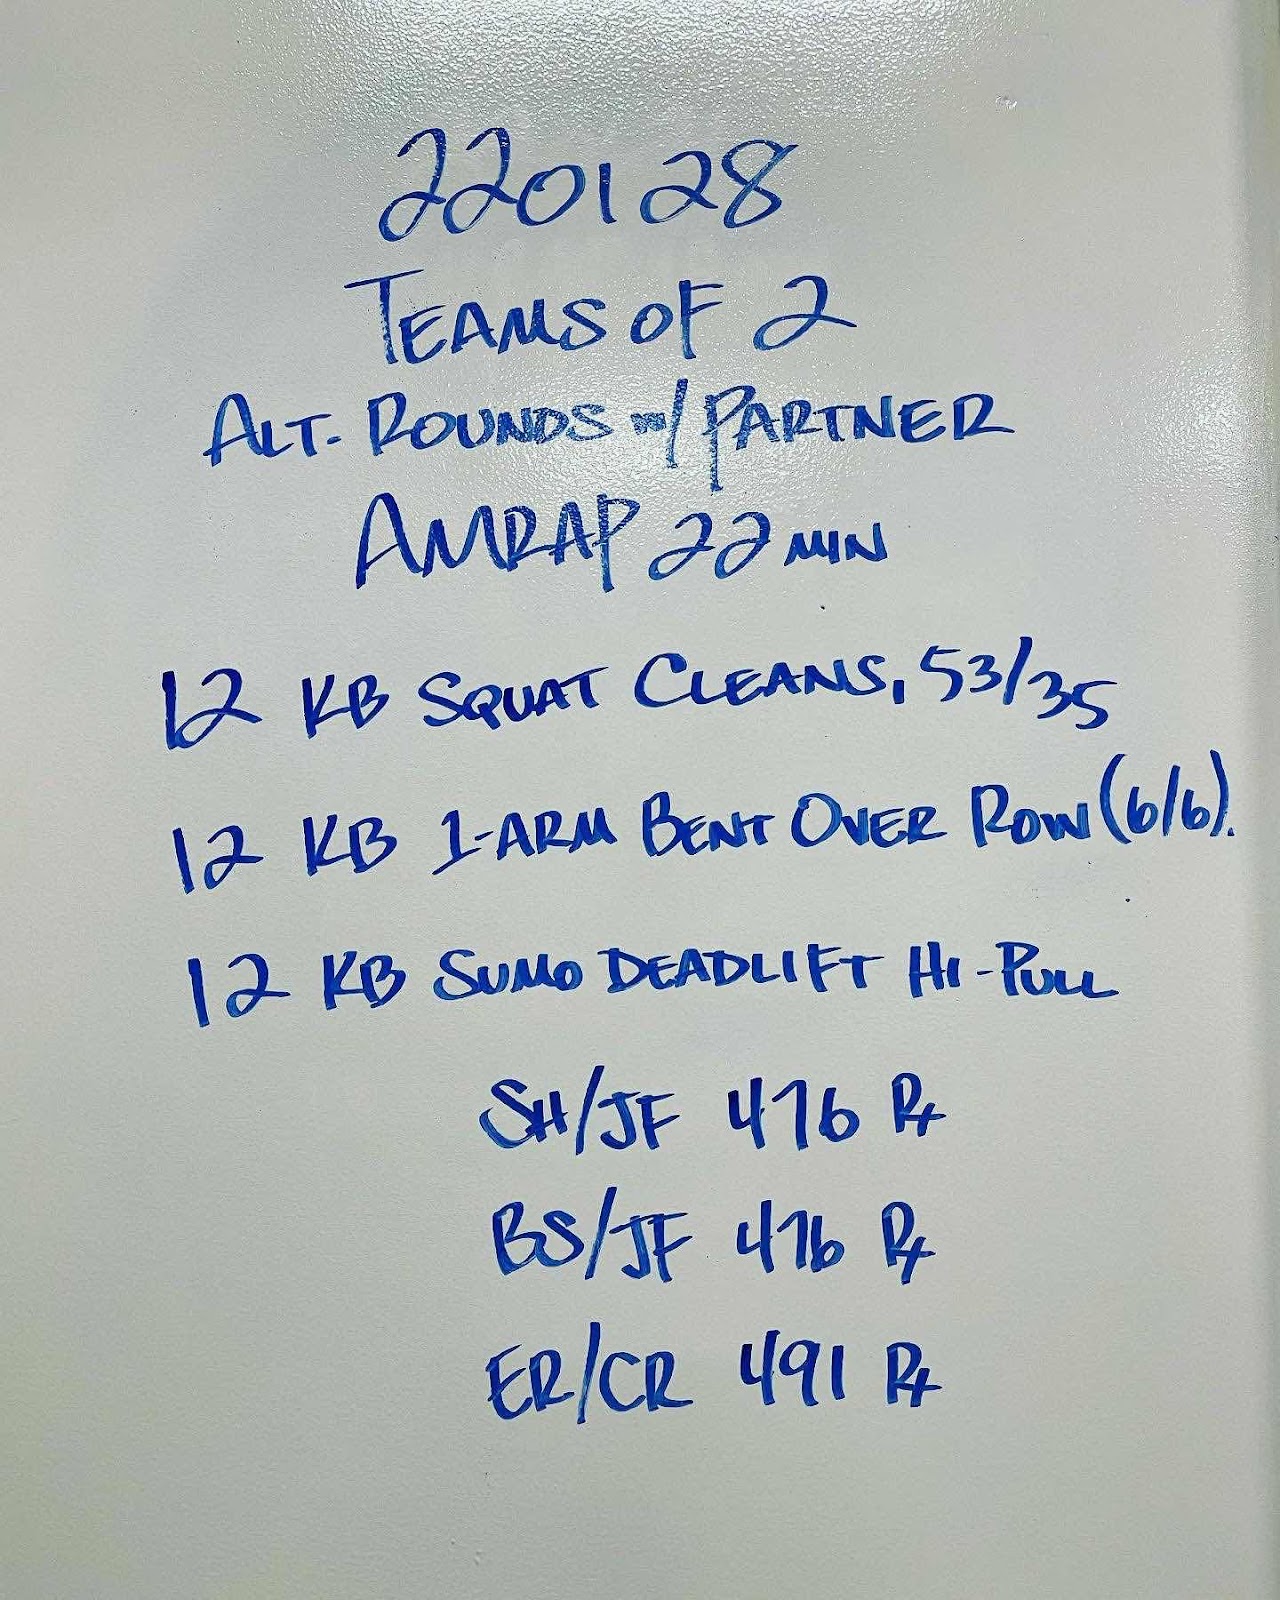 220128
TEAMS OF 2
ALT. ROUNDS w/ PARTNER
AMRAP 22 MIN
12 KB SQUAT CLEANS, 53/35
12 KB 1-ARM BENT OVER ROW (6/6).
12 KB SUMO DEADLIFT HI-PULL
SH/JF 476 Rx
BS/JF 476 Rx
ER/CR 491 Rx